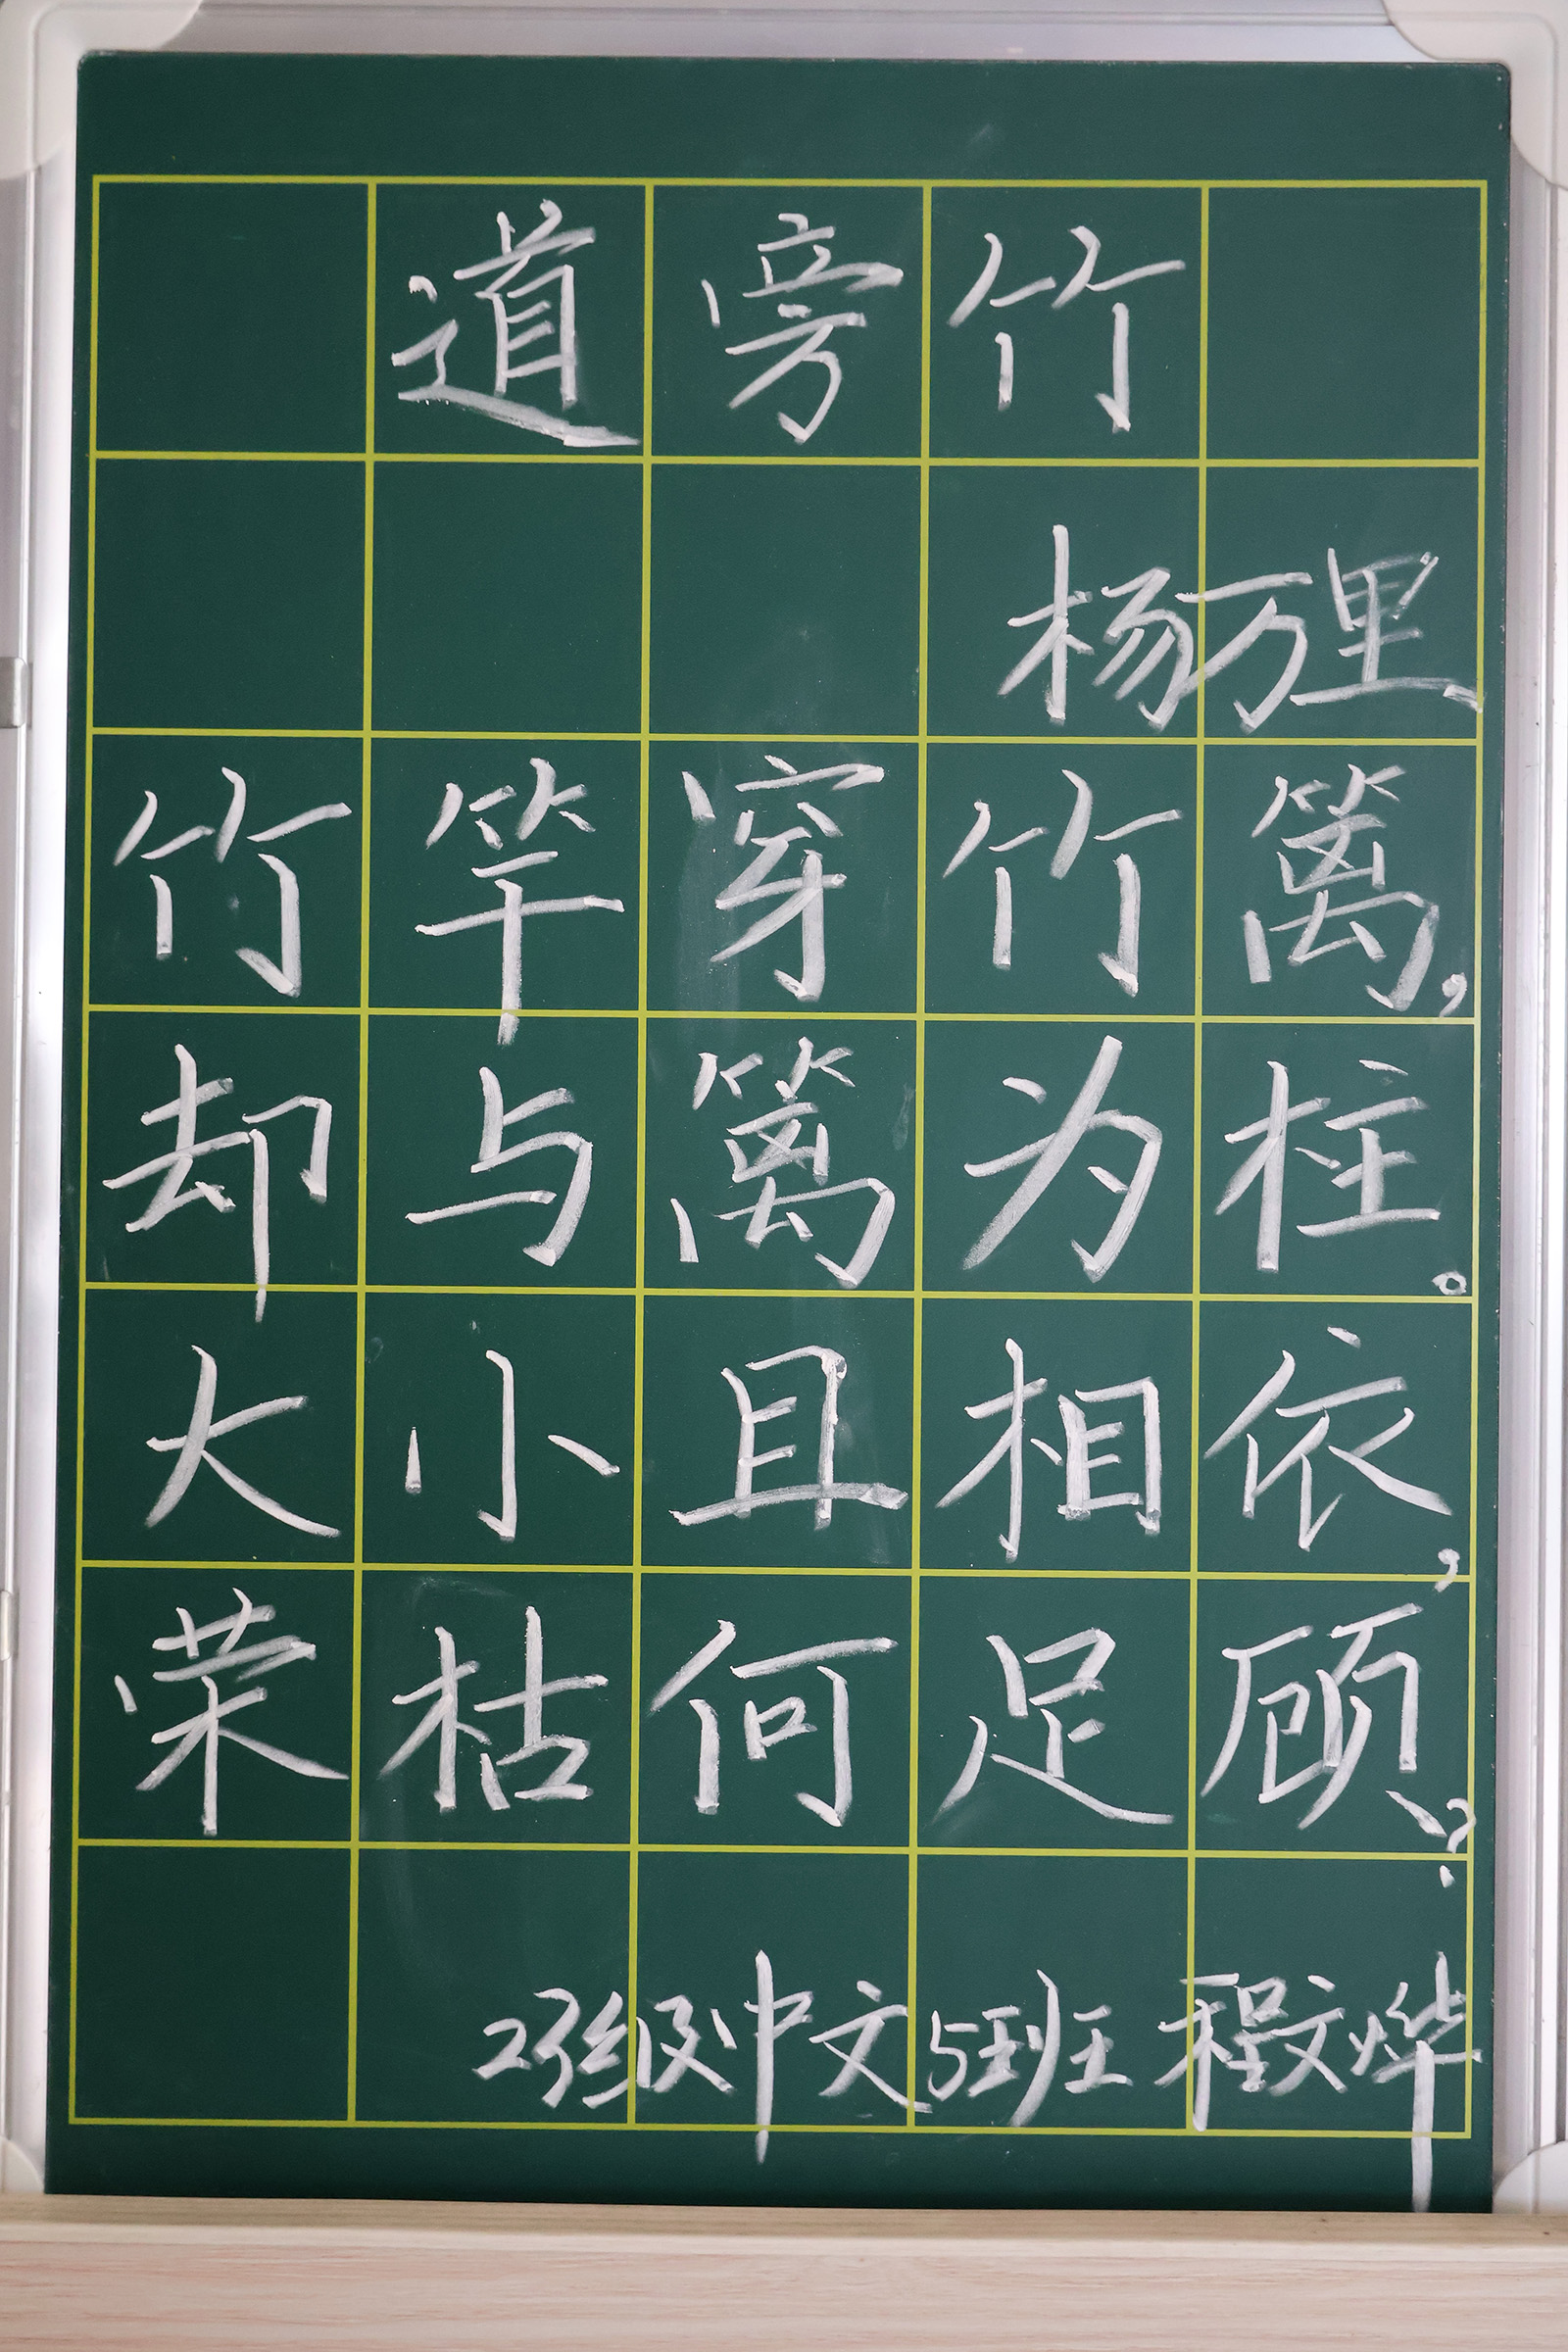 道旁竹
杨万里
竹竿穿竹篱,
却与篱为柱。
大小且相依,
荣枯何足顾?
23级中文5班 程文烨